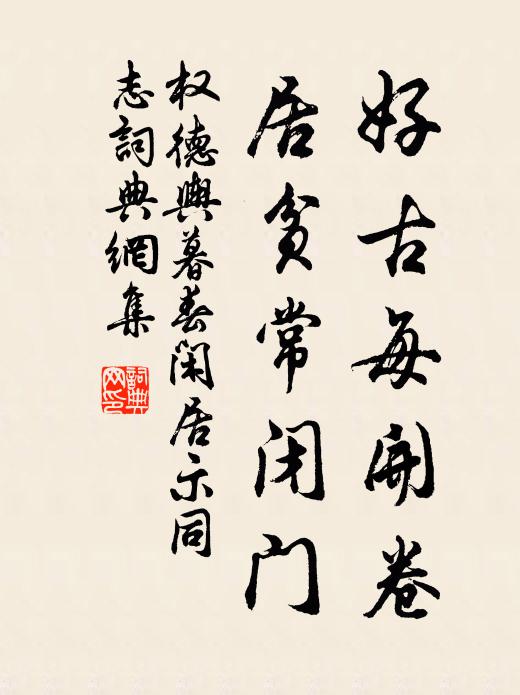 好古每開卷
居貧常闭门
权德輿暮春闲居示同
志詞典網集
詞典
网印